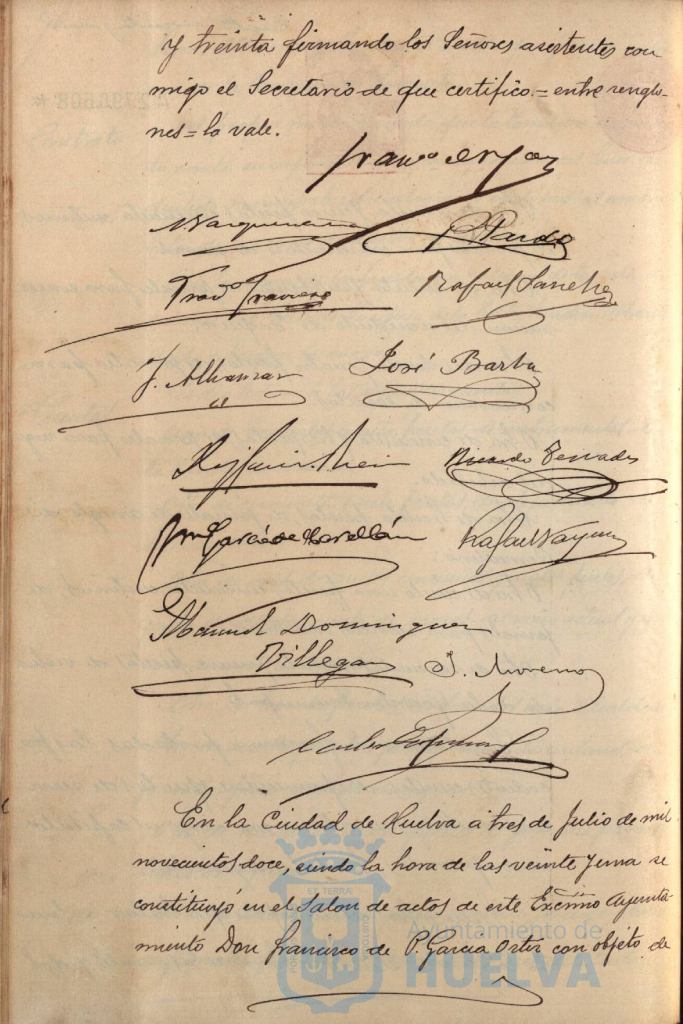 y treinta firmando los Señores asistentes con
migo el Secretario de que certifico.=entre renglo-
nes=lo vale.
P. Pardo
Rafael Sanchez
J. Alhamar
José Barba
Ricardo Terrades
García de
Rafael Vazquez
Manuel Dominguez
Villegas
J. Moreno
En la Ciudad de Huelva a tres de Julio de mil
novecientos doce, siendo la hora de las veinte y una se
constituyó en el Salon de actos de este Excmo Ayunta-
miento Don Francisco de P. García Ortiz con objeto de
Ayuntamiento de
HUELVA